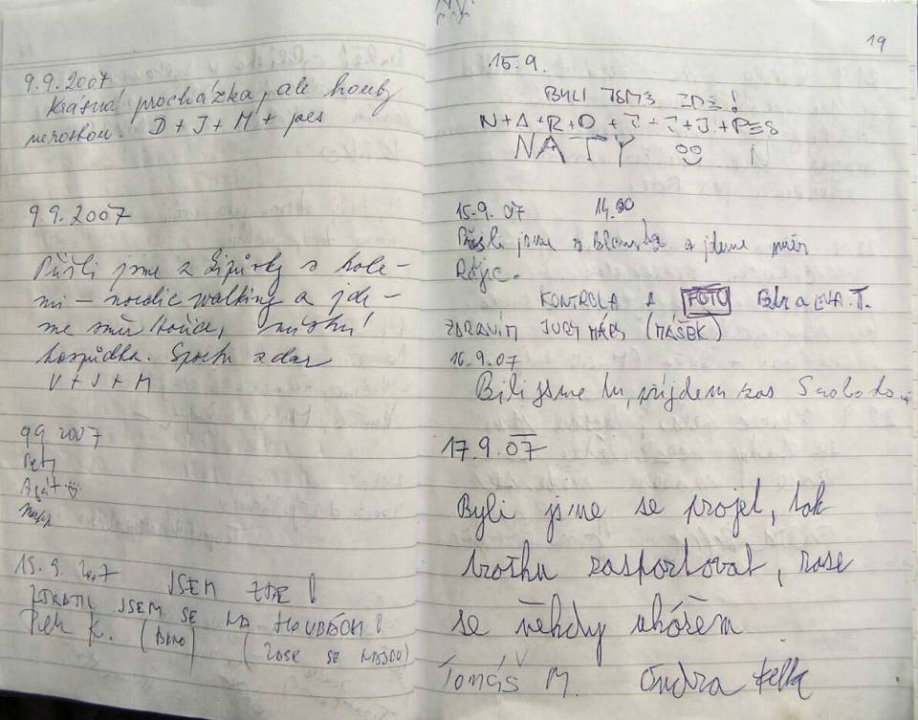 9.9.2007
Krásná procházka, ale houby
nerostou. D + J + M + pes
9.9.2007
Přišli jsme z Šipůvky s hole-
mi - nordic walking a jde-
me směr
hospůdka. Sportu zdar
V + J + M
9.9 2007
Petr
15.9.2007 JSEM ZDE!
ZTRATIL JSEM SE NA HOUBÁCH!
Petr K. (BRNO) (ZASE SE NAJDU)
19
15.9.
BYLI JSME ZDE!
N+A+R+O+J+J+J+PES
NATY
15.9.07 14.00
Přišli jsme z Blanska a jdeme směr
Rájec.
KONTROLA A FOTO EVA.T.
ZDRAVÍM (MÁŠEK)
16.9.07
Byli jsme tu, přijdem zas
17.9.07
Byli jsme se projet, tak
trochu zasportovat, zase
se někdy ukážem
Tomáš M. Ondra